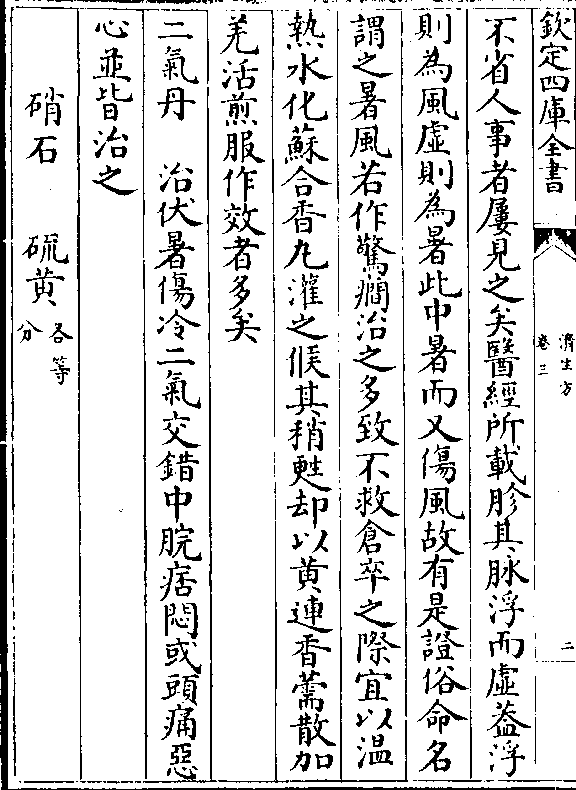 欽定四庫全書
濟生方
卷三
二
不省人事者屢見之矣醫經所載胗其脉浮而虛葢浮
則為風虛則為暑此中暑而又傷風故有是證俗命名
謂之暑風若作驚癎治之多致不救倉卒之際宜以溫
熱水化蘇合香丸灌之候其稍甦却以黄連香薷散加
羌活煎服作效者多矣
二氣丹 治伏暑傷冷二氣交錯中脘痞悶或頭痛惡
心並皆治之
硝石 硫黄各等
分